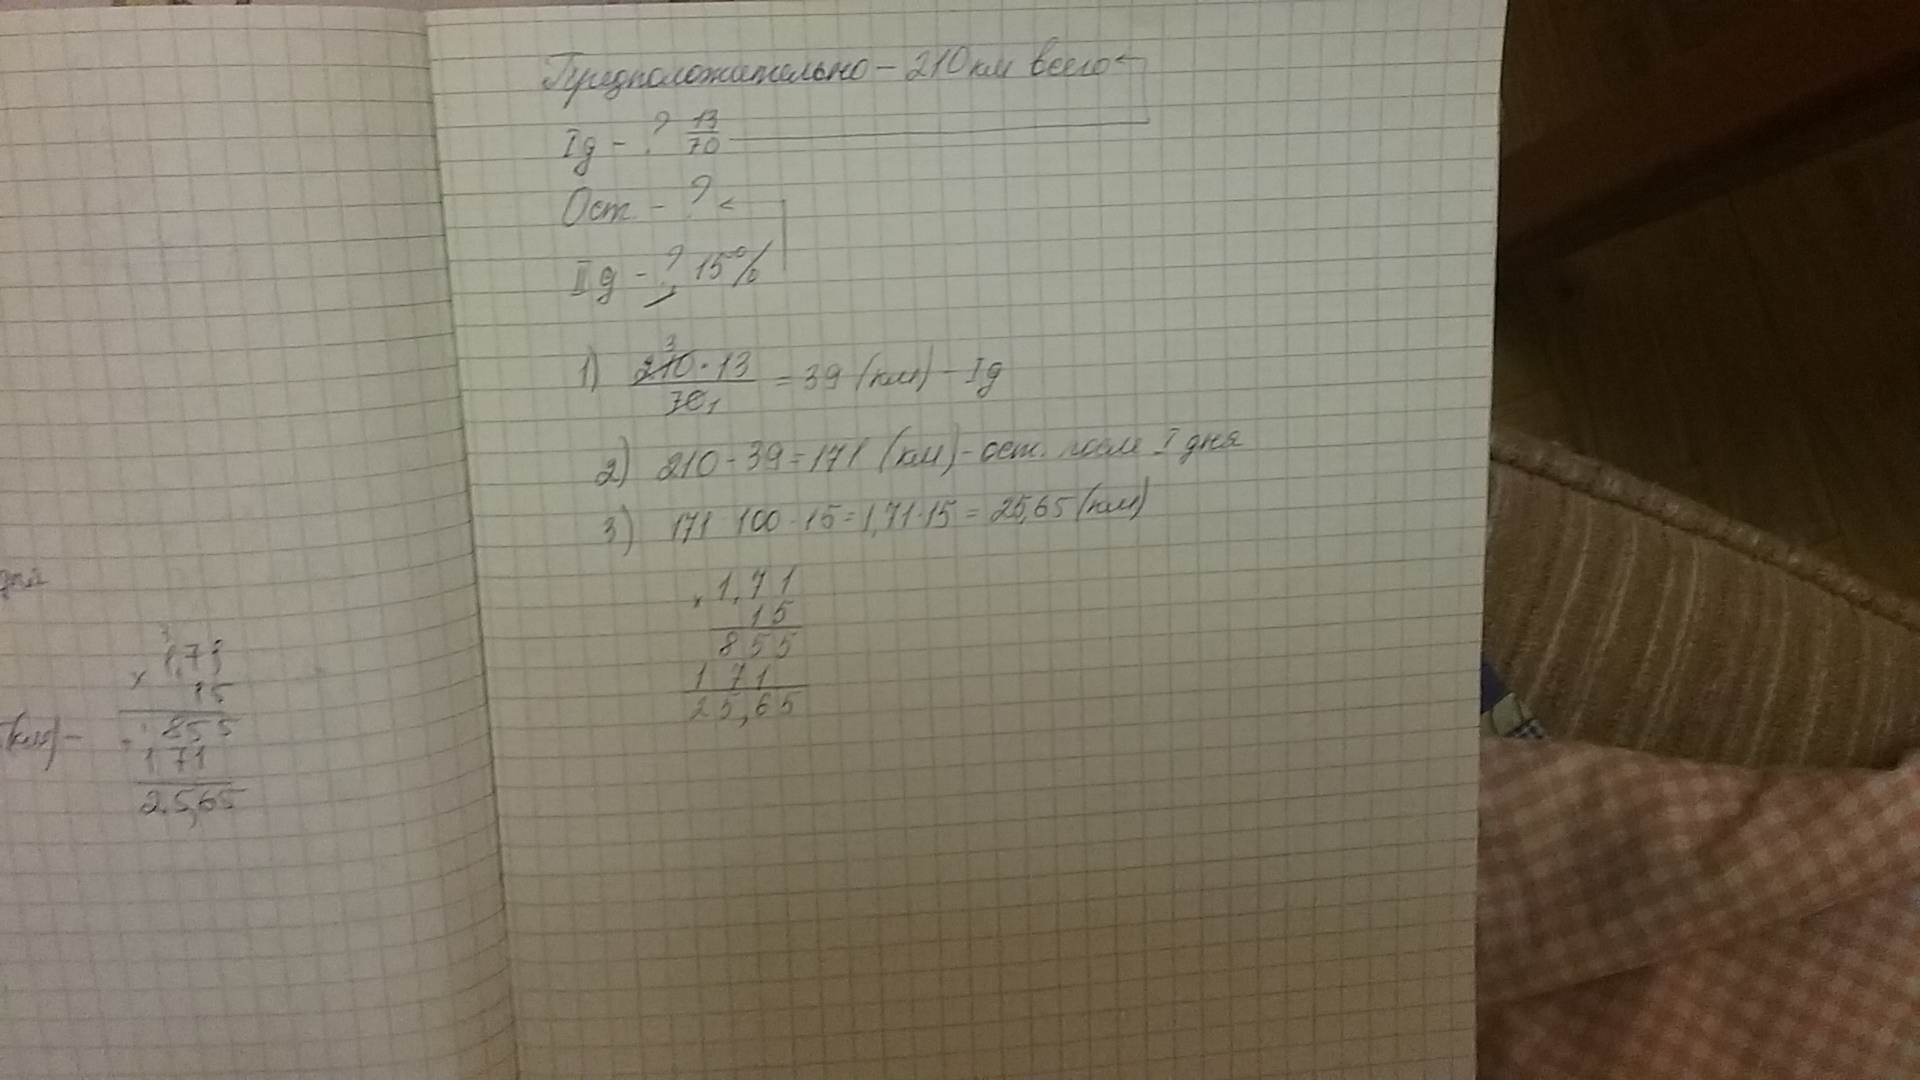 дня
1,71
× 15
(км) - 855
171
25,65
Предположительно - 210 км всего
I д - ? 13/70
Ост. - ?
II д - ?, 15%
1) 210 · 13 / 70 = 39 (км) - I д
3 1
2) 210 - 39 = 171 (км) - ост. после I дня
3) 171 100 · 15 = 1,71 · 15 = 25,65 (км)
× 1,71
15
855
171
25,65